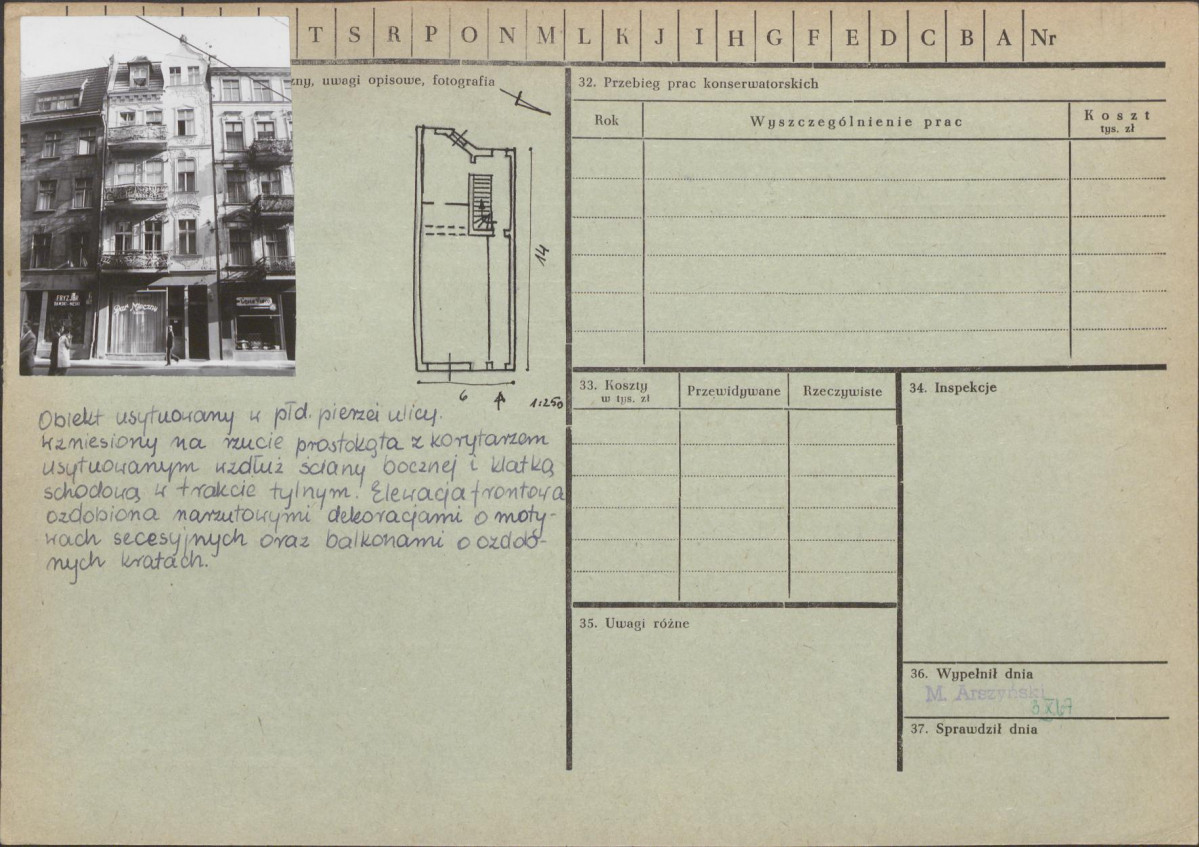 T S R P O N M L K J I H G F E D C B A Nr
zny, uwagi opisowe, fotografia
FRYZJER
Bar Mleczny
14
6
1:250
Obiekt usytuowany w płd. pierzei ulicy.
Wzniesiony na rzucie prostokąta z korytarzem
usytuowanym wzdłuż ściany bocznej i klatką
schodową w trakcie tylnym. Elewacja frontowa
ozdobiona narzutowymi dekoracjami o moty-
wach secesyjnych oraz balkonami o ozdob-
nych kratach.
32. Przebieg prac konserwatorskich
Rok
Wyszczególnienie prac
Koszt
tys. zł
33. Koszty
w tys. zł
Przewidywane
Rzeczywiste
34. Inspekcje
35. Uwagi różne
36. Wypełnił dnia
M. Arszyński
3 X 67
37. Sprawdził dnia